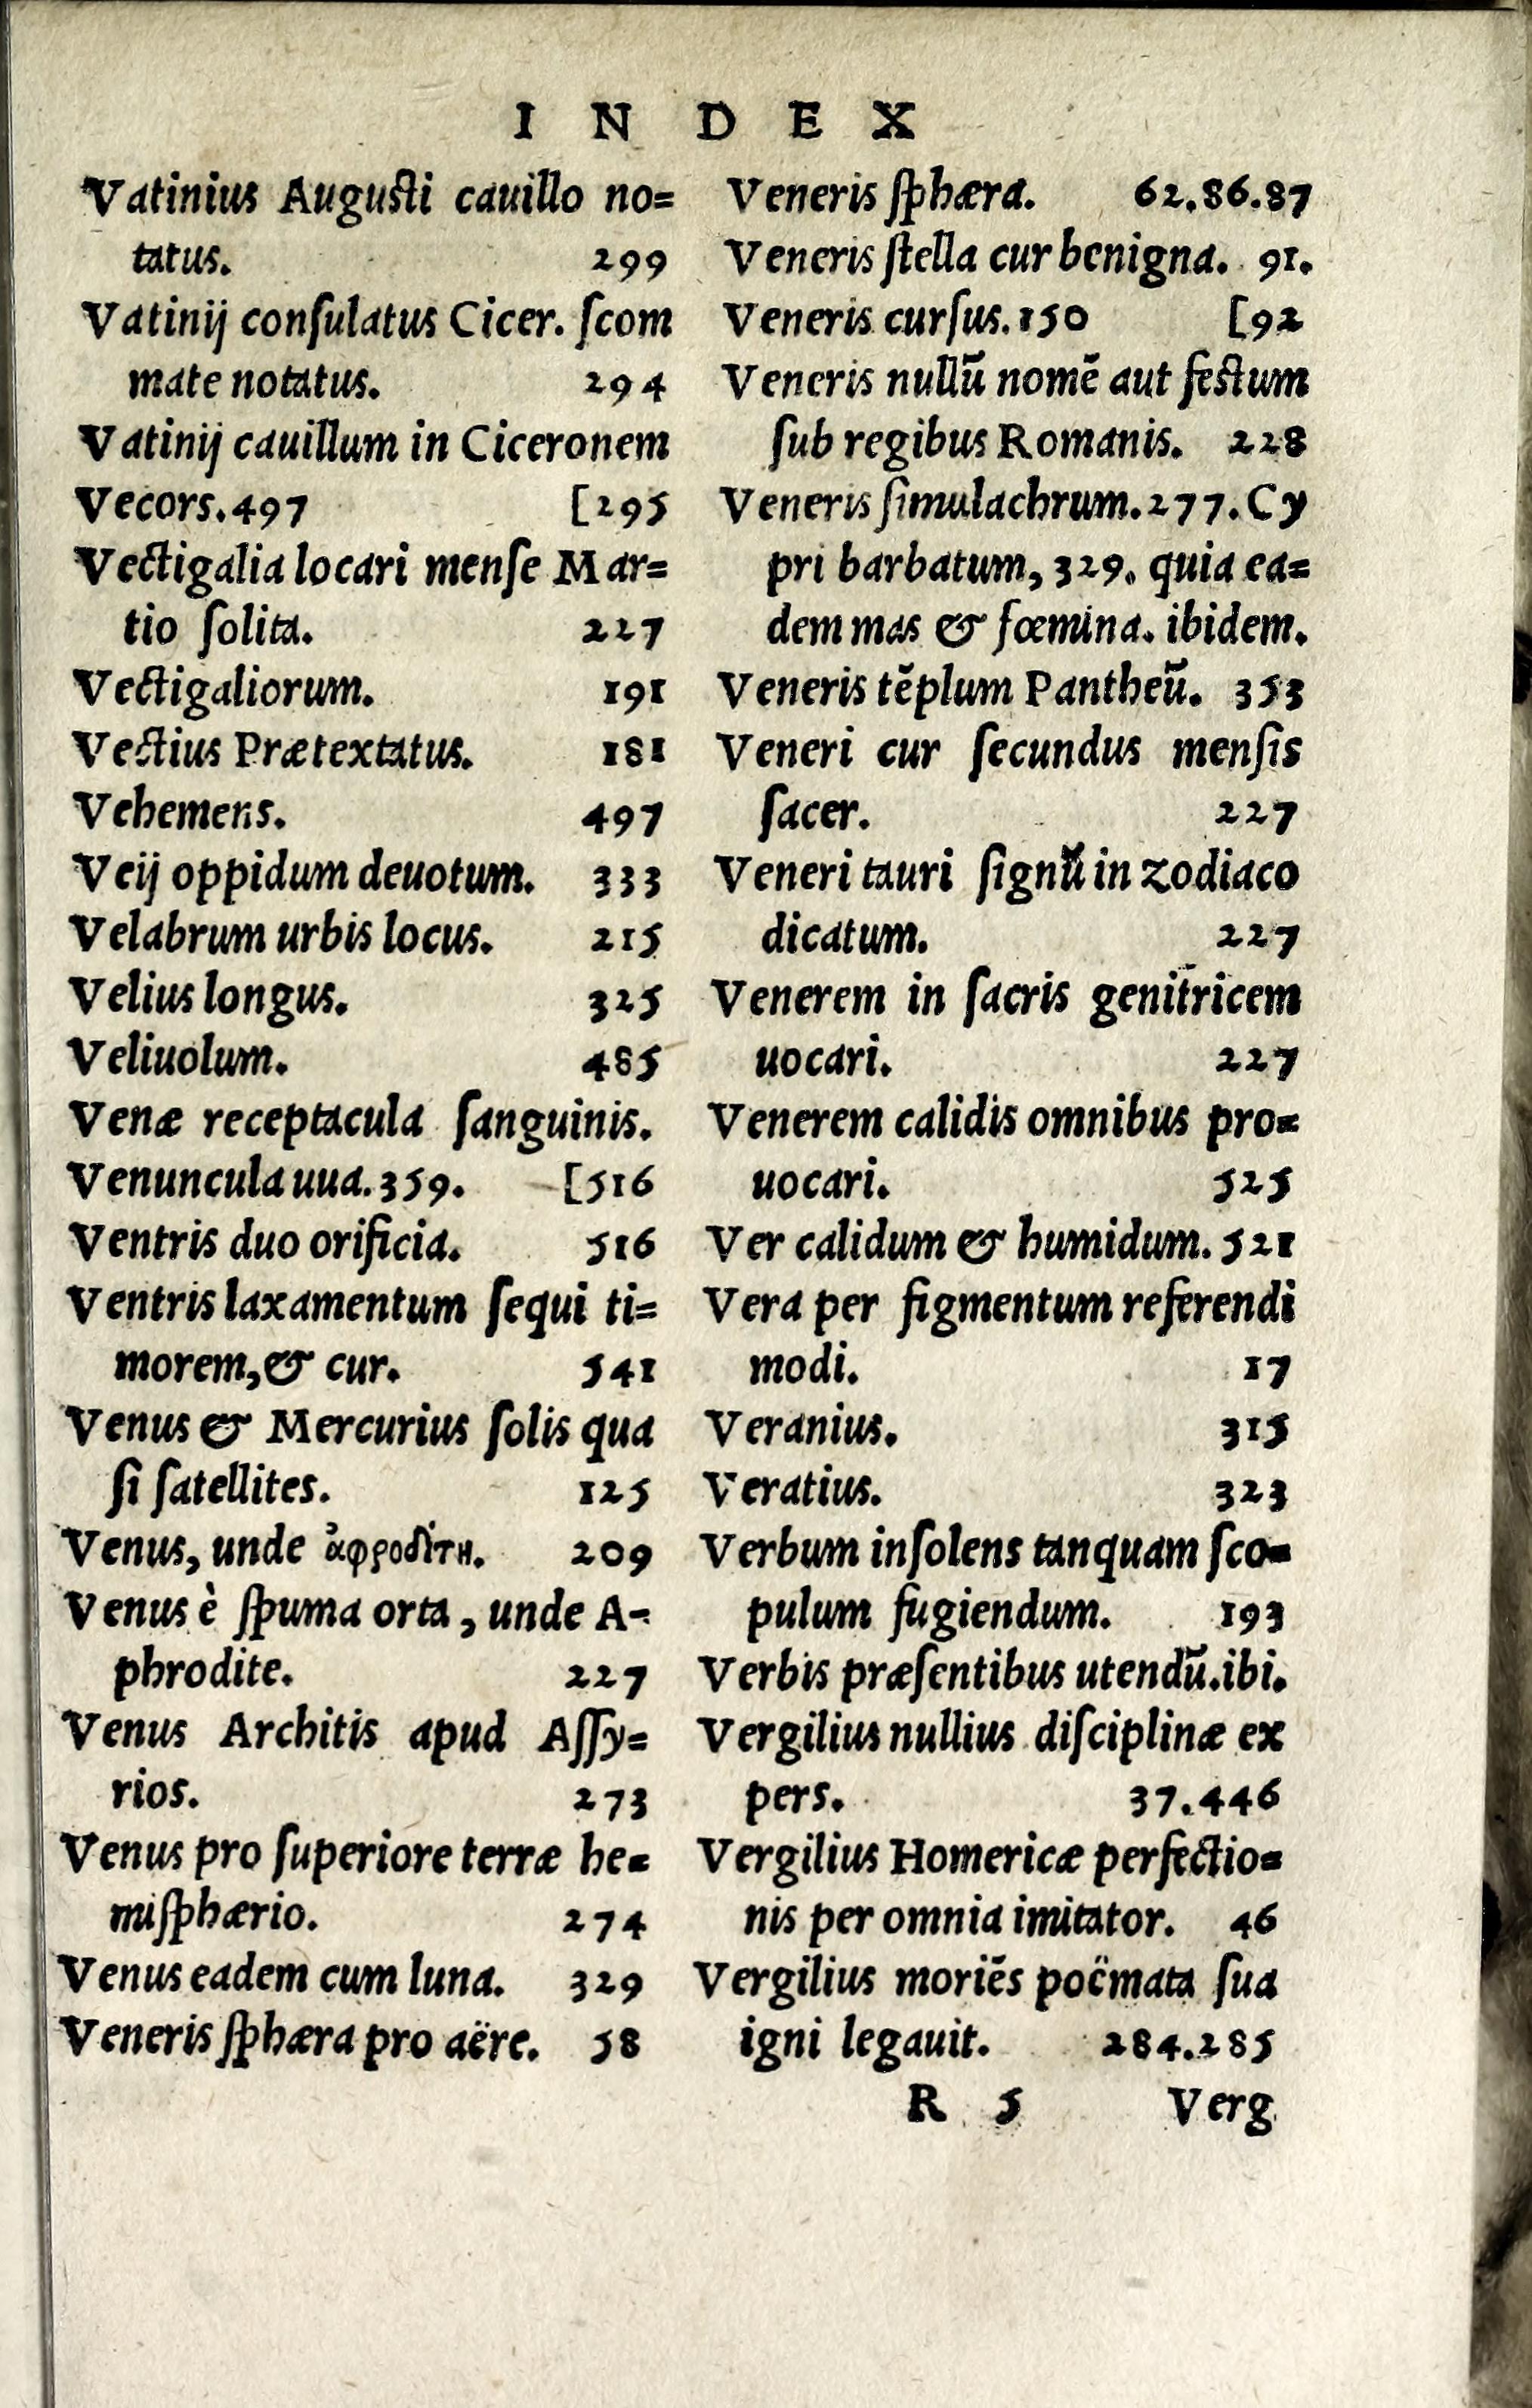 INDEX
Vatinius Augusti cauillo no=
tatus. 299
Vatinij conſulatus Cicer. ſcom
mate notatus. 294
Vatinij cauillum in Ciceronem
Vecors.497 [295
Vectigalia locari menſe Mar=
tio ſolita. 227
Vectigaliorum. 191
Vectius Prætextatus. 181
Vehemens. 497
Veij oppidum deuotum. 333
Velabrum urbis locus. 215
Velius longus. 325
Veliuolum. 485
Venæ receptacula ſanguinis.
Venuncula uua.359. [516
Ventris duo orificia. 516
Ventris laxamentum ſequi ti=
morem,& cur. 541
Venus & Mercurius ſolis qua
ſi ſatellites. 125
Venus, unde ἀφροδίτη. 209
Venus è ſpuma orta, unde A-
phrodite. 227
Venus Architis apud Aſſy=
rios. 273
Venus pro ſuperiore terræ he=
miſphærio. 274
Venus eadem cum luna. 329
Veneris ſphæra pro aëre. 58
Veneris ſphæra. 62.86.87
Veneris ſtella cur benigna. 91.
Veneris curſus.150 [92
Veneris nullũ nomẽ aut feſtum
ſub regibus Romanis. 228
Veneris ſimulachrum.277.Cy
pri barbatum, 329. quia ea=
dem mas & fœmina. ibidem.
Veneris tẽplum Pantheũ. 353
Veneri cur ſecundus menſis
ſacer. 227
Veneri tauri ſignũ in zodiaco
dicatum. 227
Venerem in ſacris genitricem
uocari. 227
Venerem calidis omnibus pro=
uocari. 525
Ver calidum & humidum. 521
Vera per figmentum referendi
modi. 17
Veranius. 315
Veratius. 323
Verbum inſolens tanquam ſco=
pulum fugiendum. 193
Verbis præſentibus utendũ.ibi.
Vergilius nullius diſciplinæ ex
pers. 37.446
Vergilius Homericæ perfectio=
nis per omnia imitator. 46
Vergilius moriẽs poëmata ſua
igni legauit. 284.285
R 5 Verg